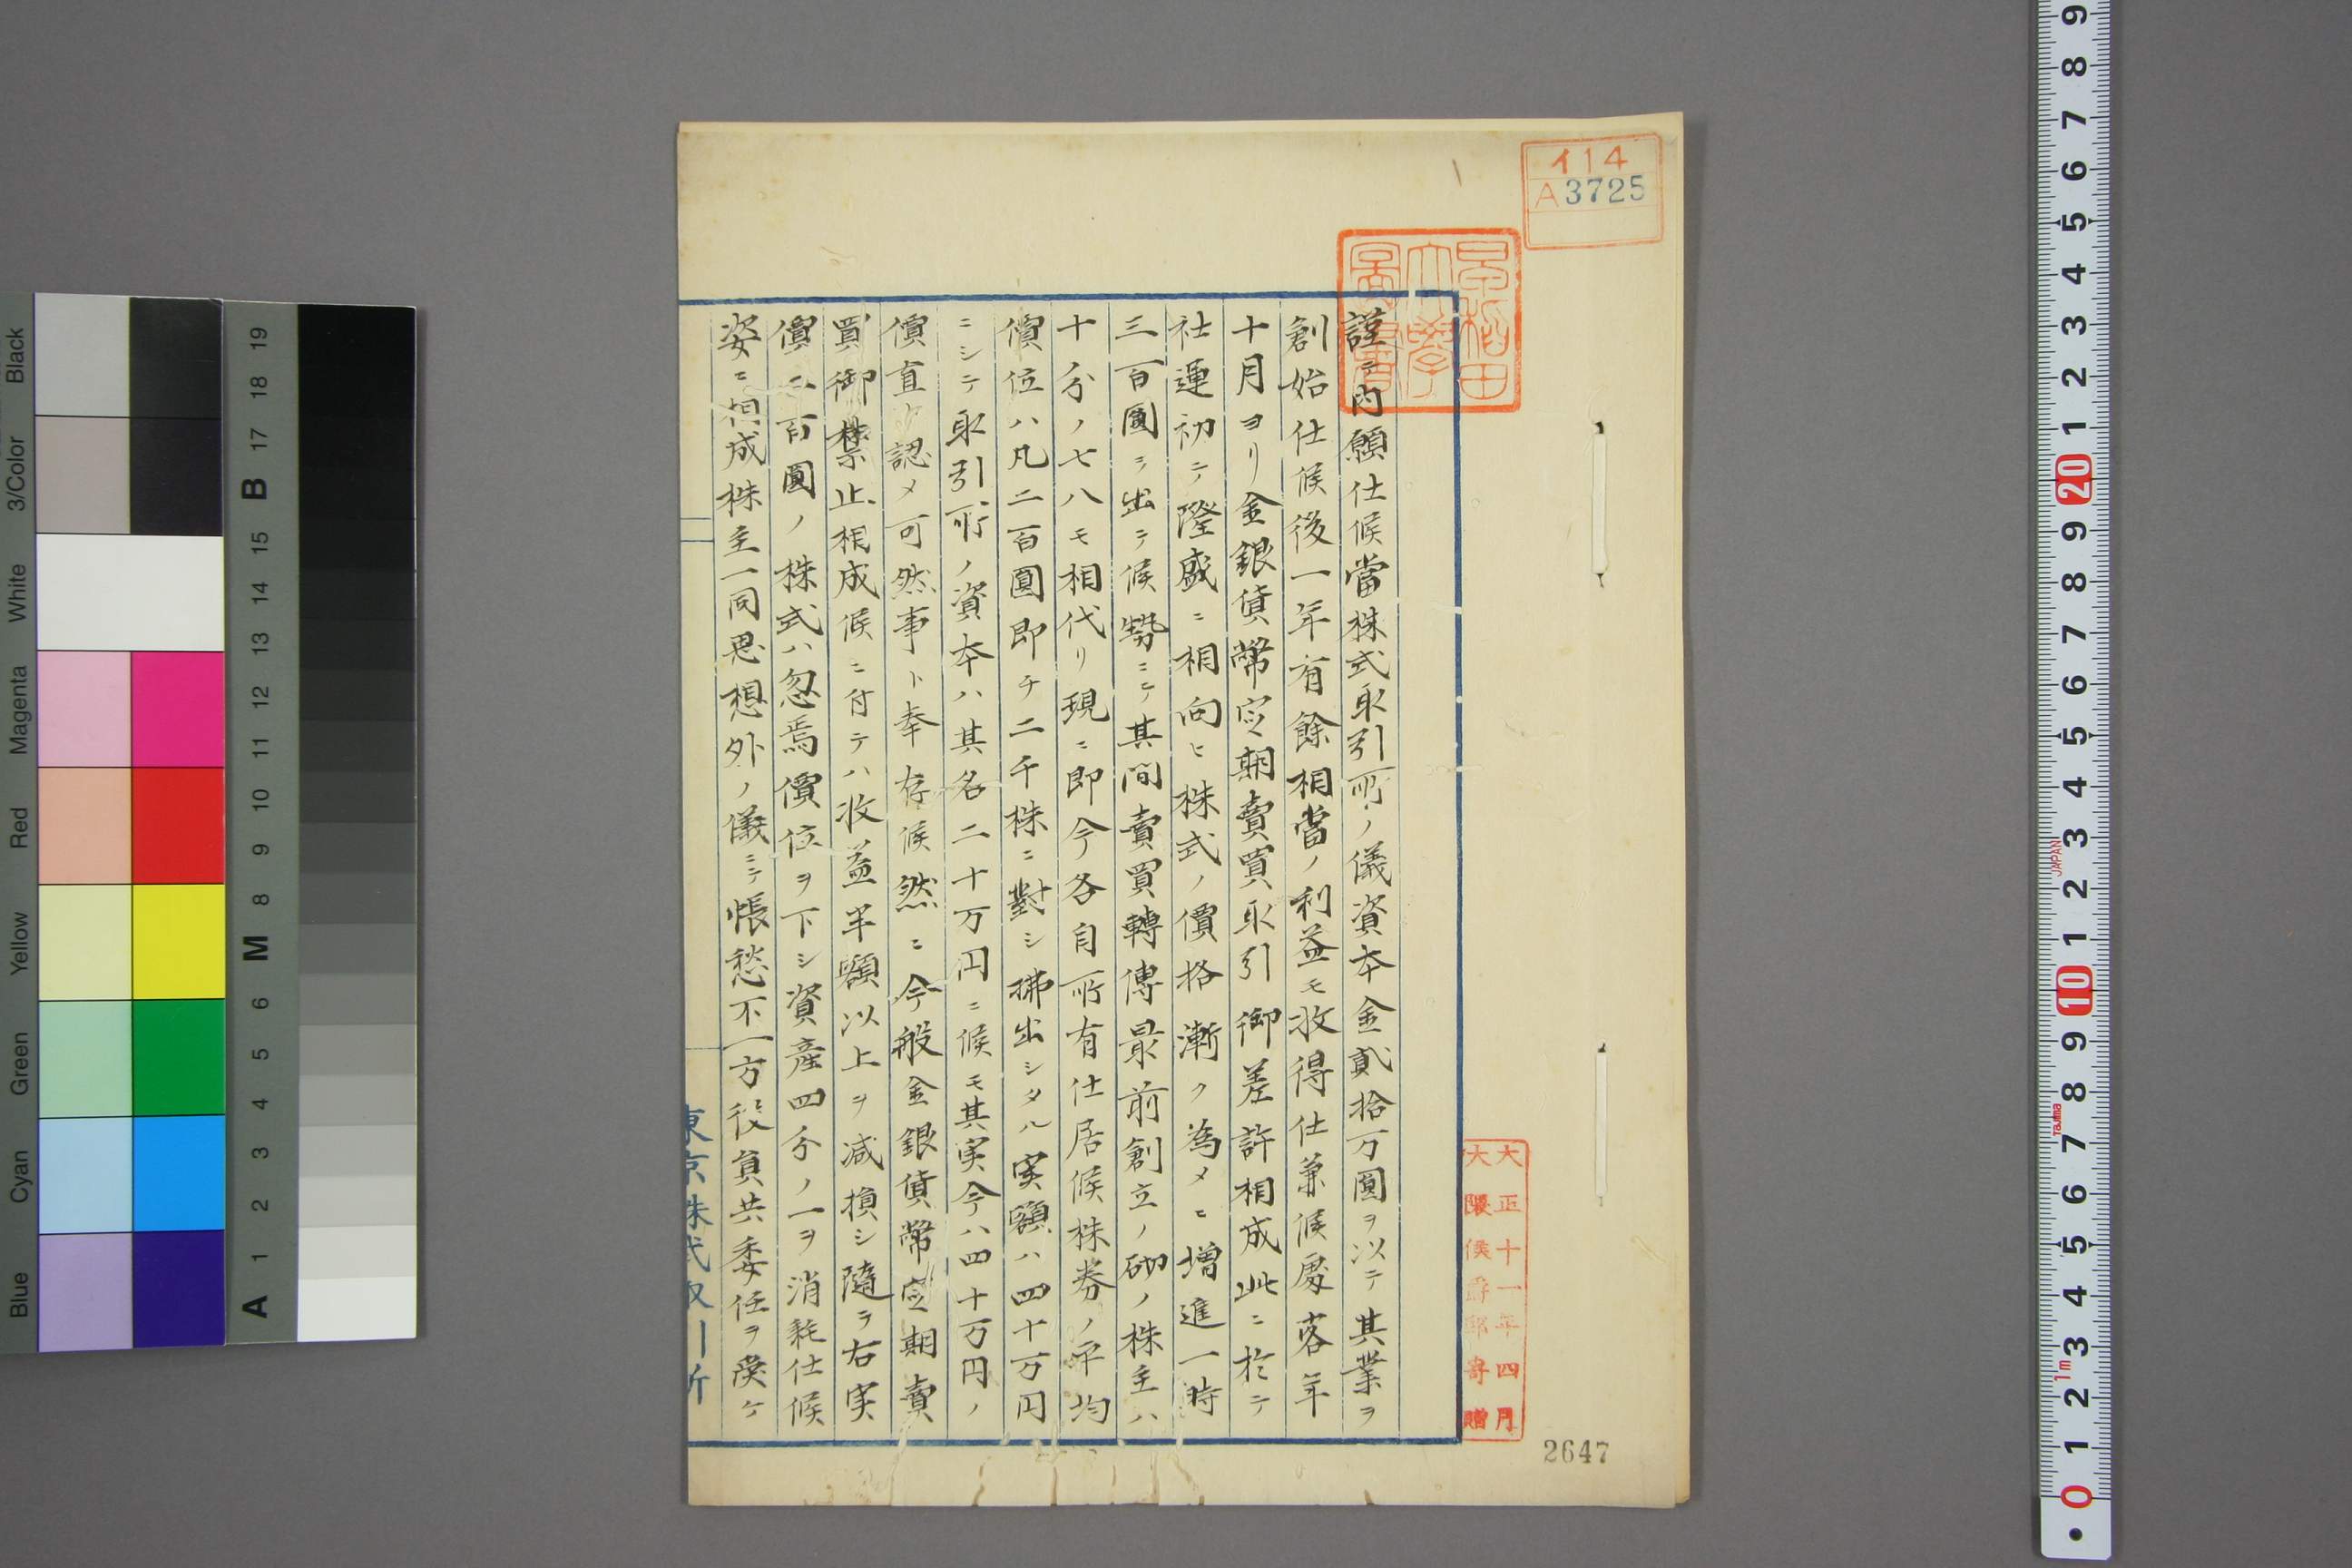 イ14
A3725
早稲田大學圖書
謹テ内願仕候當株式取引所ノ儀資本金貳拾万圓ヲ以テ其業ヲ
創始仕候後一年有餘相當ノ利益モ收得仕兼候處客年
十月ヨリ金銀貨幣定期賣買取引御差許相成此ニ於テ
社運初テ隆盛ニ相向ヒ株式ノ價格漸ク為メニ増進一時
三百圓ヲ出テ候勢ニテ其間賣買轉傳最前創立ノ砌ノ株主ハ
十分ノ七八モ相代リ現ニ即今各自所有仕居候株券ノ平均
價位ハ凡二百圓即チ二千株ニ對シ拂出シタル実額ハ四十万円
ニシテ取引所ノ資本ハ其名二十万円ニ候モ其実今ハ四十万円ノ
價直ヲ認メ可然事ト奉存候然ニ今般金銀貨幣定期賣
買御禁止相成候ニ付テハ收益半額以上ヲ減損シ隨テ右実
價二百圓ノ株式ハ忽焉價位ヲ下シ資産四分ノ一ヲ消耗仕候
姿ニ相成株主一同思想外ノ儀ニテ悵愁不一方役員共委任ヲ受ケ
東京株式取引所
大正十一年四月
大隈侯爵邸寄贈
2647
Black
3/Color
White
Magenta
Red
Yellow
Green
Cyan
Blue
19
18
B 17
16
15
14
13
12
11
10
9
8
M
6
5
4
3
2
A 1
9
8
7
6
5
4
3
2
1
20
9
8
7
6
5
4
3
2
1
10
9
8
7
6
5
4
3
2
1
0
JAPAN
Tajima
1m